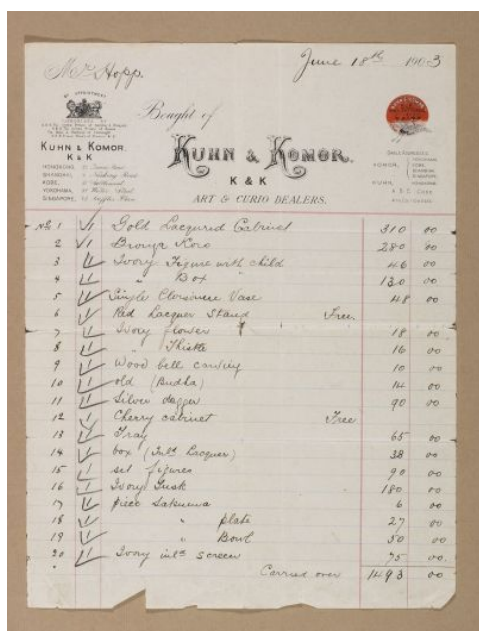 Mr Hopp.
June 18th 1903
BY APPOINTMENT
Bought of
KUHN & KOMOR.
K & K
HONGKONG,
SHANGHAI,
KOBE,
YOKOHAMA,
SINGAPORE,
KUHN & KOMOR.
K & K
ART & CURIO DEALERS.
KOMOR,
KUHN,
A B C Code
No 1 √1 Gold Lacqured Cabinet 310 00
2 √1 Bronze Koro 280 00
3 Ivory Figure with child 46 00
4 " Box " 130 00
5 Single Cloisinese Vase 48 00
6 Red Lacquer Stand Free
7 Ivory flower 18 00
8 " Thistle 16 00
9 Wood bell carving 10 00
10 old (Budha) 14 00
11 Silver dagger 90 00
12 Cherry cabinet Free
13 Tray 65 00
14 box (Inld Lacquer) 38 00
15 set figures 90 00
16 Ivory Tusk 180 00
17 piece Satsuma 6 00
18 " plate 27 00
19 " Bowl 50 00
20 Ivory inld screen 75 00.
Carried over 1493 00